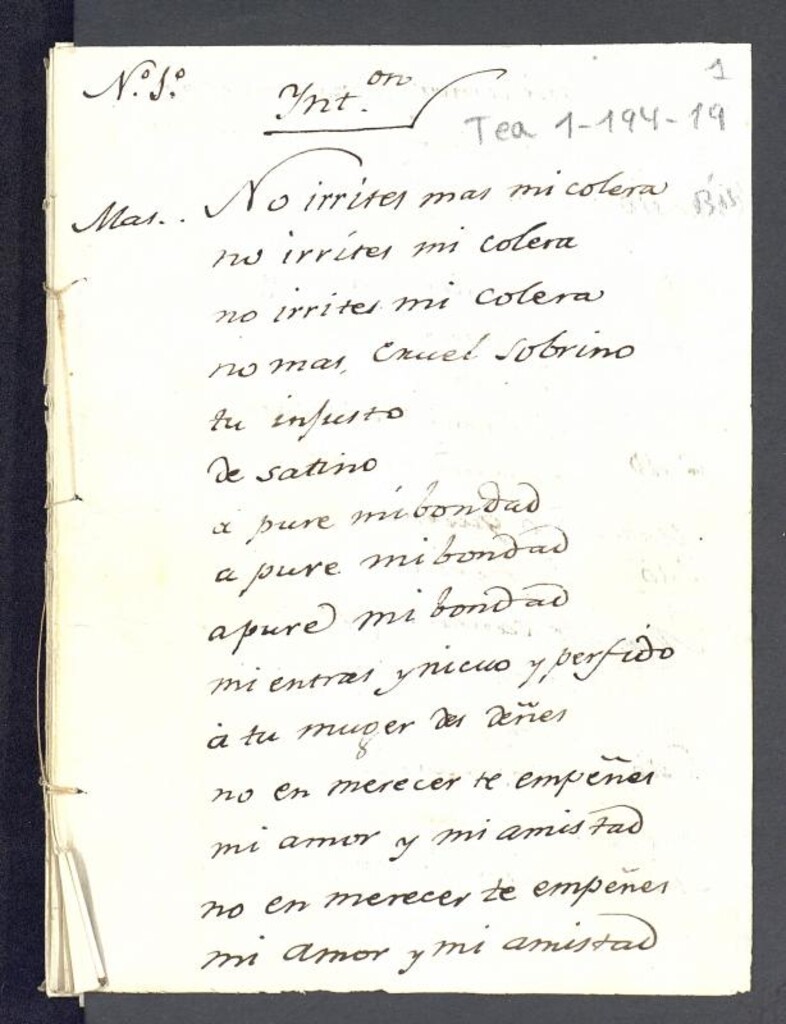 N.º 1.º
Ynt.on
1
Tea 1-194-19
Bis
Mas.. No irrites mas mi colera
no irrites mi colera
no irrites mi colera
no mas, Cruel Sobrino
tu injusto
de satino
a pure mi bondad
a pure mi bondad
apure mi bondad
mi entras ynicuo y perfido
à tu muger des deñes
no en merecer te empeñes
mi amor y mi amistad
no en merecer te empeñes
mi amor y mi amistad